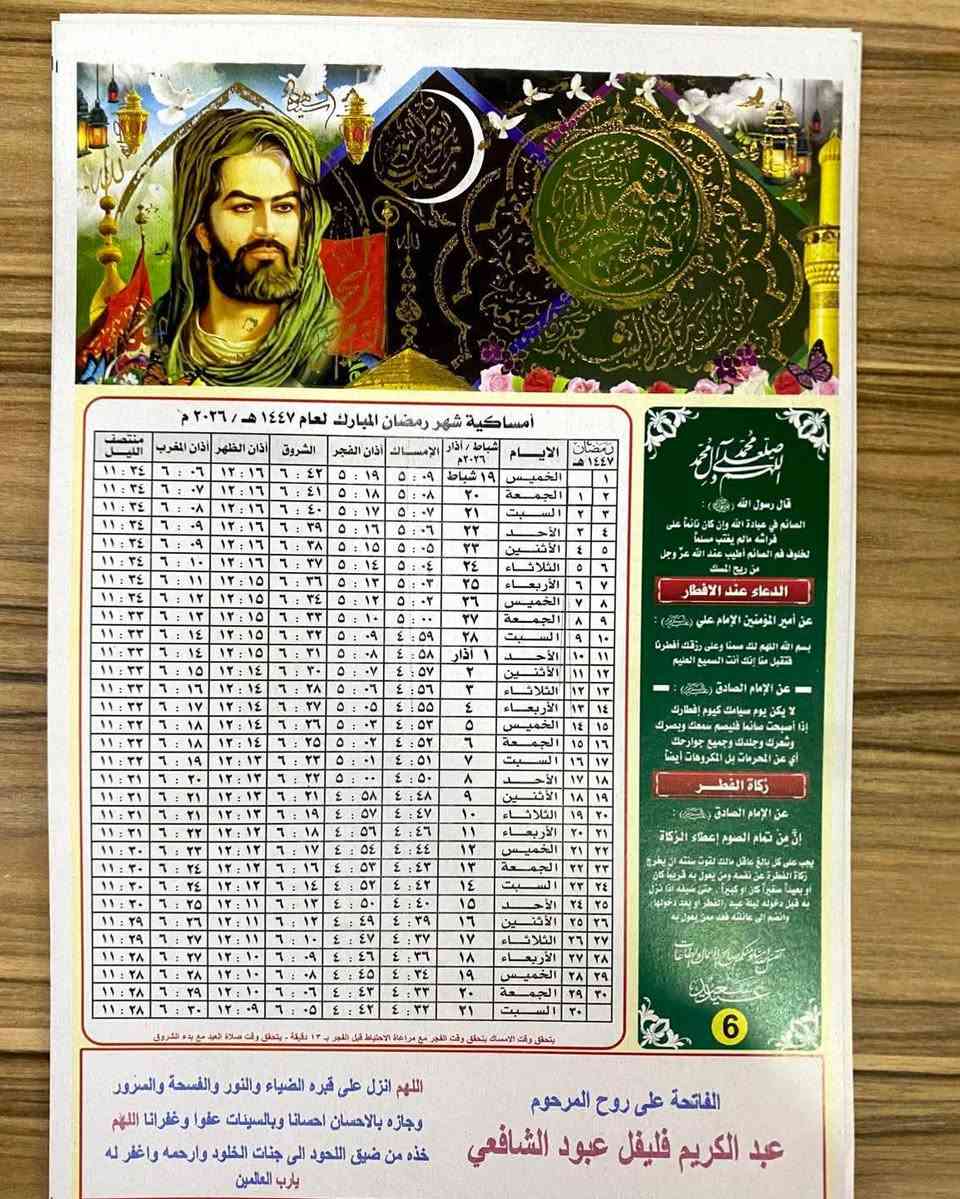 أمساكية شهر رمضان المبارك لعام ١٤٤٧ هـ / ٢٠٢٦ م
رمضان ١٤٤٧ هـ الايام شباط / آذار ٢٠٢٦م الإمساك أذان الفجر الشروق أذان الظهر أذان المغرب منتصف الليل
١ الخميس ١٩ شباط ٠٩ : ٥ ١٩ : ٥ ٤٢ : ٦ ١٦ : ١٢ ٠٦ : ٦ ٣٤ : ١١
٢ ١ الجمعة ٢٠ ٠٨ : ٥ ١٨ : ٥ ٤١ : ٦ ١٦ : ١٢ ٠٧ : ٦ ٣٤ : ١١
٣ ٢ السبت ٢١ ٠٧ : ٥ ١٧ : ٥ ٤٠ : ٦ ١٦ : ١٢ ٠٨ : ٦ ٣٤ : ١١
٤ ٣ الأحد ٢٢ ٠٦ : ٥ ١٦ : ٥ ٣٩ : ٦ ١٦ : ١٢ ٠٩ : ٦ ٣٤ : ١١
٥ ٤ الأثنين ٢٣ ٠٥ : ٥ ١٥ : ٥ ٣٨ : ٦ ١٦ : ١٢ ٠٩ : ٦ ٣٤ : ١١
٦ ٥ الثلاثاء ٢٤ ٠٤ : ٥ ١٤ : ٥ ٣٧ : ٦ ١٦ : ١٢ ١٠ : ٦ ٣٤ : ١١
٧ ٦ الأربعاء ٢٥ ٠٣ : ٥ ١٣ : ٥ ٣٦ : ٦ ١٥ : ١٢ ١١ : ٦ ٣٤ : ١١
٨ ٧ الخميس ٢٦ ٠٢ : ٥ ١٢ : ٥ ٣٤ : ٦ ١٥ : ١٢ ١٢ : ٦ ٣٣ : ١١
٩ ٨ الجمعة ٢٧ ٠٠ : ٥ ١٠ : ٥ ٣٣ : ٦ ١٥ : ١٢ ١٣ : ٦ ٣٣ : ١١
١٠ ٩ السبت ٢٨ ٥٩ : ٤ ٠٩ : ٥ ٣٢ : ٦ ١٥ : ١٢ ١٤ : ٦ ٣٣ : ١١
١١ ١٠ الأحد ١ آذار ٥٨ : ٤ ٠٨ : ٥ ٣١ : ٦ ١٥ : ١٢ ١٤ : ٦ ٣٣ : ١١
١٢ ١١ الأثنين ٢ ٥٧ : ٤ ٠٧ : ٥ ٣٠ : ٦ ١٤ : ١٢ ١٥ : ٦ ٣٣ : ١١
١٣ ١٢ الثلاثاء ٣ ٥٦ : ٤ ٠٦ : ٥ ٢٨ : ٦ ١٤ : ١٢ ١٦ : ٦ ٣٣ : ١١
١٤ ١٣ الأربعاء ٤ ٥٥ : ٤ ٠٥ : ٥ ٢٧ : ٦ ١٤ : ١٢ ١٧ : ٦ ٣٢ : ١١
١٥ ١٤ الخميس ٥ ٥٣ : ٤ ٠٣ : ٥ ٢٦ : ٦ ١٤ : ١٢ ١٨ : ٦ ٣٢ : ١١
١٦ ١٥ الجمعة ٦ ٥٢ : ٤ ٠٢ : ٥ ٢٥ : ٦ ١٤ : ١٢ ١٨ : ٦ ٣٢ : ١١
١٧ ١٦ السبت ٧ ٥١ : ٤ ٠١ : ٥ ٢٣ : ٦ ١٣ : ١٢ ١٩ : ٦ ٣٢ : ١١
١٨ ١٧ الأحد ٨ ٥٠ : ٤ ٠٠ : ٥ ٢٢ : ٦ ١٣ : ١٢ ٢٠ : ٦ ٣١ : ١١
١٩ ١٨ الأثنين ٩ ٤٨ : ٤ ٥٨ : ٤ ٢١ : ٦ ١٣ : ١٢ ٢١ : ٦ ٣١ : ١١
٢٠ ١٩ الثلاثاء ١٠ ٤٧ : ٤ ٥٧ : ٤ ١٩ : ٦ ١٣ : ١٢ ٢١ : ٦ ٣١ : ١١
٢١ ٢٠ الأربعاء ١١ ٤٦ : ٤ ٥٦ : ٤ ١٨ : ٦ ١٢ : ١٢ ٢٢ : ٦ ٣١ : ١١
٢٢ ٢١ الخميس ١٢ ٤٤ : ٤ ٥٤ : ٤ ١٧ : ٦ ١٢ : ١٢ ٢٣ : ٦ ٣٠ : ١١
٢٣ ٢٢ الجمعة ١٣ ٤٣ : ٤ ٥٣ : ٤ ١٦ : ٦ ١٢ : ١٢ ٢٤ : ٦ ٣٠ : ١١
٢٤ ٢٣ السبت ١٤ ٤٢ : ٤ ٥٢ : ٤ ١٤ : ٦ ١٢ : ١٢ ٢٤ : ٦ ٣٠ : ١١
٢٥ ٢٤ الأحد ١٥ ٤٠ : ٤ ٥٠ : ٤ ١٣ : ٦ ١١ : ١٢ ٢٥ : ٦ ٣٠ : ١١
٢٦ ٢٥ الأثنين ١٦ ٣٩ : ٤ ٤٩ : ٤ ١٢ : ٦ ١١ : ١٢ ٢٦ : ٦ ٢٩ : ١١
٢٧ ٢٦ الثلاثاء ١٧ ٣٧ : ٤ ٤٧ : ٤ ١٠ : ٦ ١١ : ١٢ ٢٧ : ٦ ٢٩ : ١١
٢٨ ٢٧ الأربعاء ١٨ ٣٦ : ٤ ٤٦ : ٤ ٠٩ : ٦ ١٠ : ١٢ ٢٧ : ٦ ٢٨ : ١١
٢٩ ٢٨ الخميس ١٩ ٣٤ : ٤ ٤٥ : ٤ ٠٨ : ٦ ١٠ : ١٢ ٢٨ : ٦ ٢٨ : ١١
٣٠ ٢٩ الجمعة ٢٠ ٣٣ : ٤ ٤٣ : ٤ ٠٦ : ٦ ١٠ : ١٢ ٢٩ : ٦ ٢٨ : ١١
٣٠ السبت ٢١ ٣٢ : ٤ ٤٢ : ٤ ٠٥ : ٦ ٠٩ : ١٢ ٣٠ : ٦ ٢٨ : ١١
يتحقق وقت الامساك بتحقق وقت الفجر مع مراعاة الاحتياط قبل الفجر بـ ١٣ دقيقة - يتحقق وقت صلاة العيد مع بدء الشروق
اللهم صل على محمد وآل محمد
قال رسول الله (ﷺ) :
الصائم في عبادة الله وإن كان نائماً على
فراشه مالم يغتب مسلماً
لخلوف فم الصائم أطيب عند الله عزّ وجل
من ريح المسك
الدعاء عند الافطار
عن أمير المؤمنين الإمام علي :
بسم الله اللهم لك صمنا وعلى رزقك أفطرنا
فتقبل منا إنك أنت السميع العليم
عن الإمام الصادق
لا يكن يوم صيامك كيوم إفطارك
إذا أصبحت صائما فليصم سمعك وبصرك
وشعرك وجلدك وجميع جوارحك
أي عن المحرمات بل المكروهات أيضاً
زكاة الفطر
عن الإمام الصادق :
إنَّ مِن تمام الصوم إعطاء الزكاة
يجب على كل بالغ عاقل مالك لقوت سنته ان يخرج
زكاة الفطرة عن نفسه ومن يعول به قريباً كان
او بعيداً صغيراً كان او كبيراً ، حتى ضيفه اذا نزل
به قبل دخوله ليلة عيد الفطر او بعد دخولها
وانضم الى عائلته فعد ممن يعول به
6
الفاتحة على روح المرحوم
عبد الكريم فليفل عبود الشافعي
اللهم انزل على قبره الضياء والنور والفسحة والسرور
وجازه بالاحسان احسانا وبالسيئات عفوا وغفرانا اللهم
خذه من ضيق اللحود الى جنات الخلود وارحمه واغفر له
يارب العالمين